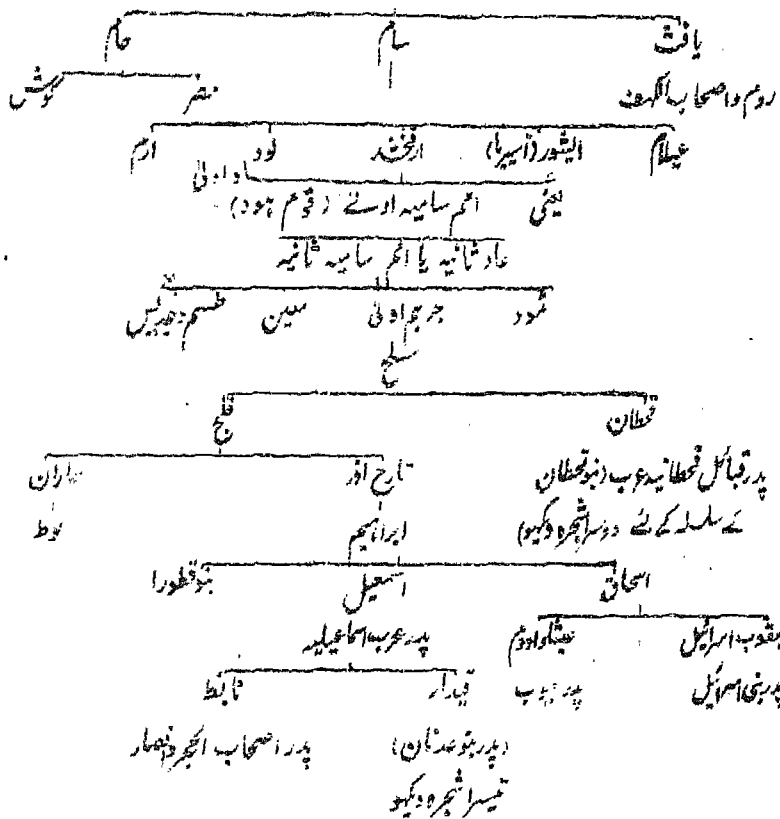 یافث سام حام
روم و اصحاب الکہف مصر کوش
عیلام ایشور (اسیریا) ارفخشد لود ارم
یعنی عاد اولیٰ
امم سامیہ اولے (قوم ہود)
عاد ثانیہ یا امم سامیہ ثانیہ
ثمود جرہم اولیٰ معین طسم و جدیس
سلح
قحطان فلج
پدر قبائل قحطانیہ عرب (بنو قحطان تارح آذر ہاران
کے سلسلہ کے لئے دوسرا شجرہ دیکھو) ابراہیم لوط
اسحاق اسمعیل بنو قطورا
یعقوب اسرائیل عیشاو ادوم پدر عرب اسماعیلیہ
پدر بنی اسرائیل پدر ایوب قیدار نابط
(پدر بنو عدنان) پدر اصحاب الحجر و انصار
تیسرا شجرہ دیکھو